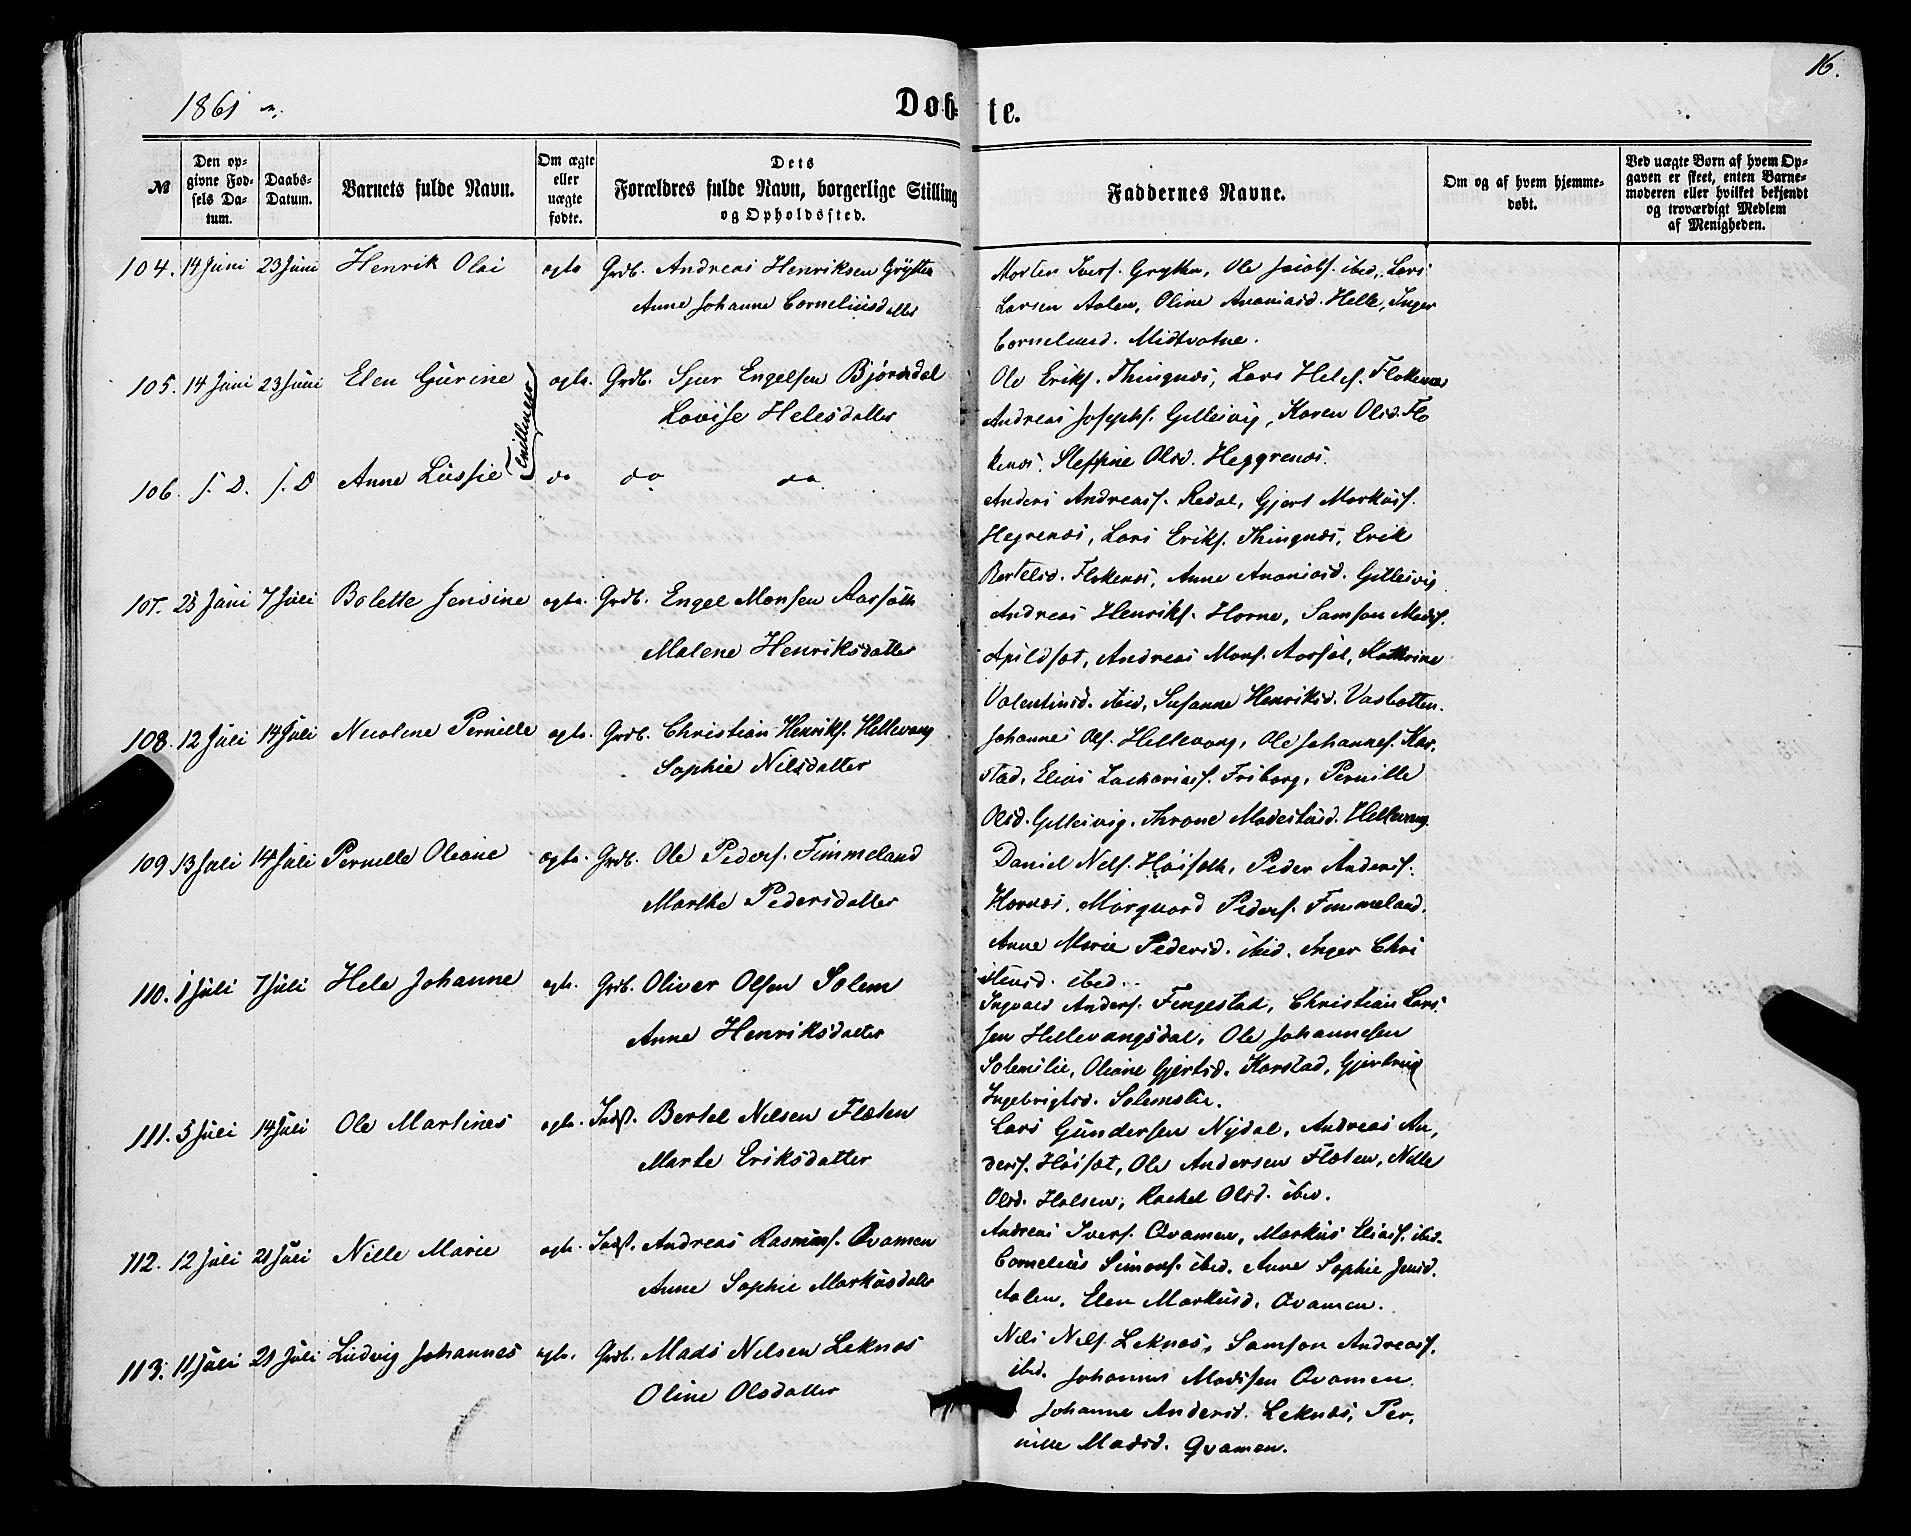 16.
1861
Døb- te.
№
Den op-
givne Fød-
sels Da-
tum.
Daabs-
Datum.
Barnets fulde Navn.
Om ægte
eller
uægte
fødte.
Dets
Forældres fulde Navn, borgerlige Stilling
og Opholdssted.
Faddernes Navne.
Om og af hvem hjemme-
døbt.
Ved uægte Børn af hvem Op-
gaven er skeet, enten Barne-
moderen eller hvilket bekjendt
og troværdigt Medlem
af Menigheden.
104. 14 Juni 23 Juni Henrik Olai ægte Grdb. Andreas Henriksen Grytten
Anne Johanne Corneliusdatter
Morten Ivers. Grytten, Ole Jacobs. ibid, Lars
Larsen Aalen, Oline Ananiasd. Helle, Inger
Corneliusd. Midtvatne.
105. 14 Juni 23 Juni Elen Gurine ægte. Grdb. Sjur Engelsen Bjørndal
Lovise Helesdatter
Tvillinger
Ole Eriks. Thingnæs, Lars Heles. Flokenæs
Andreas Josephs. Gillesvig, Karen Olsd. Flo
kenæs. Steffine Olsd. Heggrenæs.
106. s. D. s. D Anne Lussie do do do.
Anders Andreass. Redal, Gjert Markuss.
Hegrenæs, Lars Eriks. Thingnæs, Erik
Bertelsd. Flokenæs, Anne Ananiasd. Gillesvig
107. 28 Juni 7 Juli Bolette Jensine ægte. Grdb. Engel Monsen Aarsæth
Malene Henriksdatter
Andreas Henriks. Horne, Samson Mads.
Apildset, Andreas Mons. Aarsæt, Kathrine
Valentinsd. ibid, Susanne Henriksd. Vasbotten.
108. 12 Juli 14 Juli Nicoline Pernille ægte. Grdb. Christian Henriks. Hellevang
Sophie Nilsdatter
Johannes Ols. Hellevang, Ole Johannes. Kar-
stad, Elias Zacharias. Friborg, Pernille
Olsd. Gillesvig. Throne Modestusd. Hellevang.
109. 13 Juli 14 Juli Pernille Oliane ægte. Grdb. Ole Peders. Fimmeland
Marthe Pedersdatter
Daniel Nels. Høiseth, Peder Anders.
Hornæs, Marqvard Peders. Fimmeland.
Anne Marie Pedersd. ibid. Inger Chri
stensd. ibid.
110. 1 Juli 7 Juli Hele Johanne ægt. Grdb. Oliver Olsen Solem
Anne Henriksdatter
Ingvald Anders. Fingestad, Christian Lars
sen Hellevangsdal, Ole Johannesen
Solemslie, Oliane Gjertsd. Karstad, Gjertrud
Ingebrigtsd. Solemslie.
111. 5 Juli 14 Juli Ole Martines ægte. Indst. Bertel Nilsen Flæten
Marte Eriksdatter
Lars Gundersen Nydal, Andreas An-
ders. Høiset, Ole Andersen Flæten, Nille
Olsd. Halsen, Rachel Olsd. ibid.
112. 12 Juli 21 Juli Nille Marie ægte. Indst. Andreas Rasmuss. Qvamen
Anne Sophie Markusdatter
Andreas Ivers. Qvamen, Markus Elias. ibid.
Cornelius Simons. ibid. Anne Sophie Jensd.
Aalen, Elen Markusd. Qvamen.
113. 11 Juli 21 Juli Ludvig Johannes ægte. Grdb. Mads Nilsen Leknæs
Oline Olsdatter
Nils Nils. Leknæs, Samson Andreass.
ibid. Johannes Madssen Qvamen.
Johanne Andersd. Leknæs, Per-
nille Madsd. Qvamen.